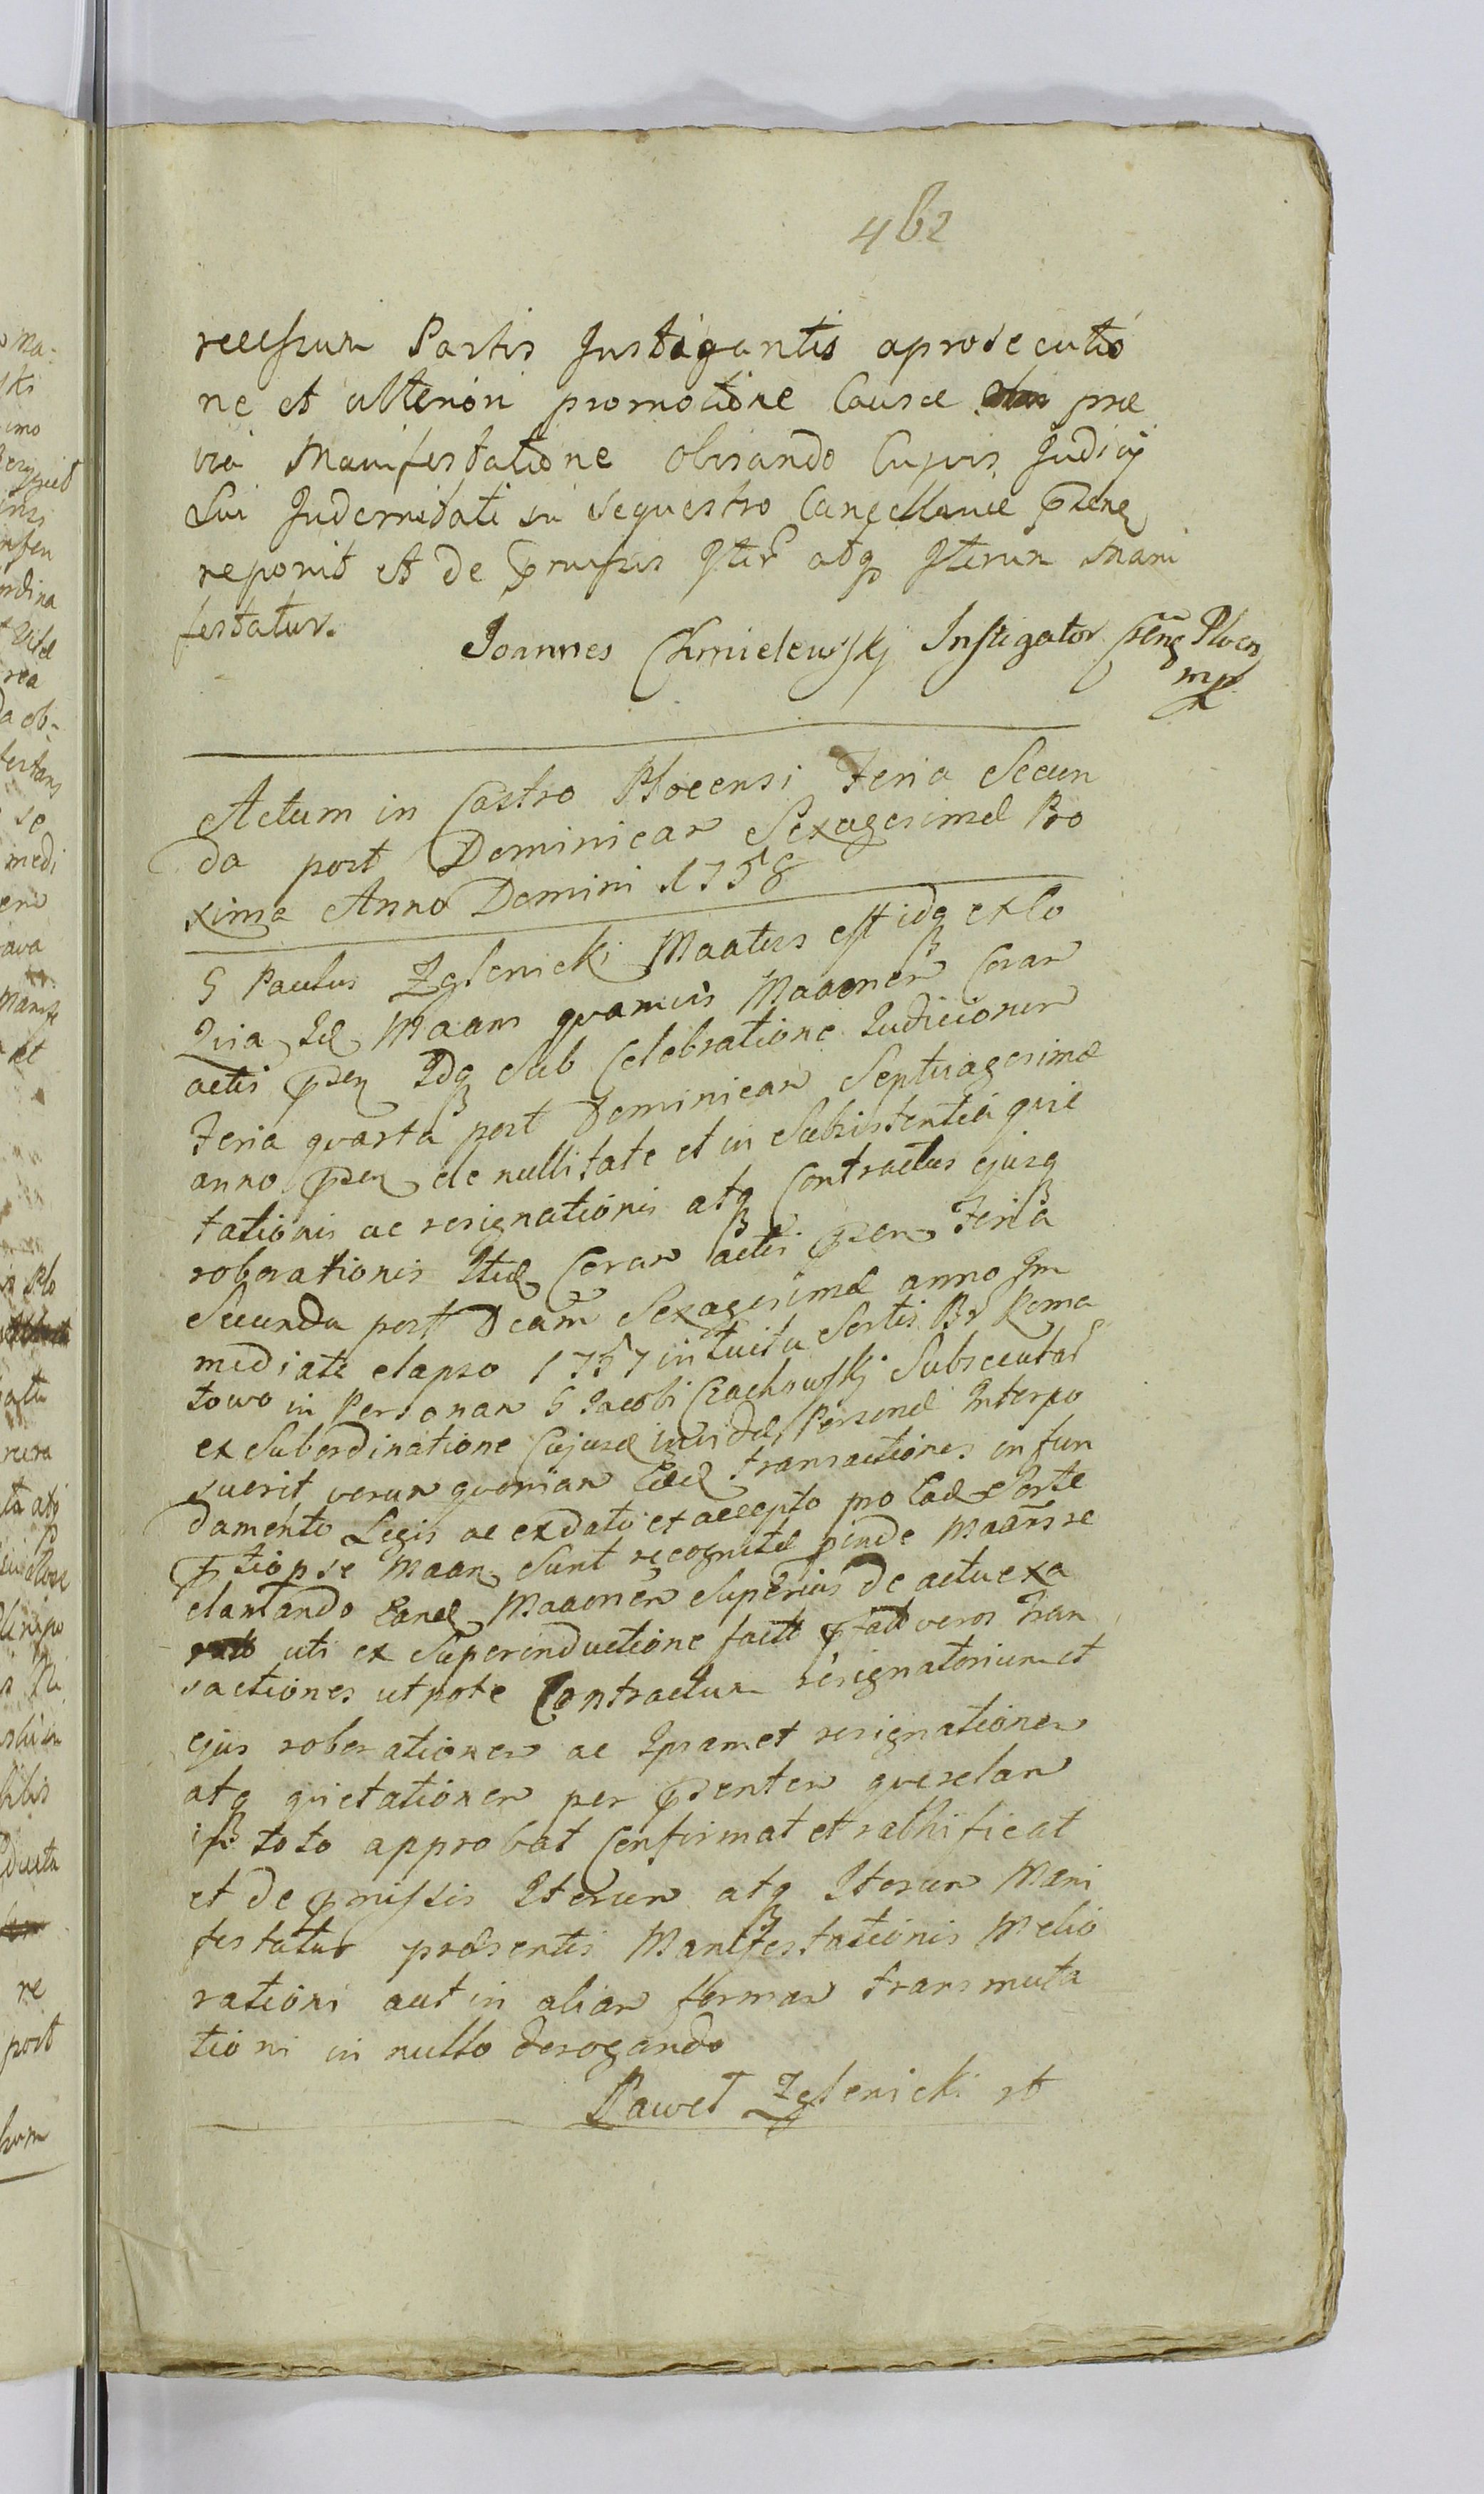 462
recessum Partis Instigantis aprosecutio
ne et ulteriori promotione Causæ præ
via Manifestatione obviando Cujusvis Judicij
Sui Indemnitati in sequestro Cancellariæ
reponit et de præmissis Iter atq Iterum Mani
festatur.
Joannes Chmielewskj Instigator Crens Plocen
mp
Actum in Castro Plocensi Feria Secun
da post Dominicam Sexagesimæ Pro
xima Anno Domini 1758
G Paulus Zglenicki Maatus est idq exeo
Quia Id Maans quamvis Maaonem Coram
actis psen Idq Sub Celebratione Judiciorum
Feria quarta post Dominicam Septuagesimæ
anno psen de nullitate et in Subsistentia quie
tationis ac resignationis atq Contractus ejusq
roborationis Itid Coram actis psen Feria
Secunda post Dcam Sexagesimæ anno Im
mediate elapso 1757 intuitu Sortis Br Roma
towo in Personam G Jacobi Czachowskj Subsecutar
ex Subordinatione Cujusd invidæ Personæ Interpo
suerit verum quoniam Eæd transactiones in fun
damento Legis ac exdato et accepto pro Ead Sorte
ptiopse Maan Sunt recognitæ pinde Maans re
clamando Eand Maaonem Superius de actu exa
uti ex Superinductione facto pfat veros Tran
sactiones utpote Contractum resignatorium et
ejus roborationem ac Ipsamet resignationem
atq quietationem per psentem querelam
in toto approbat Confirmat et rathificat
et de pmissis Iterum atq Iterum Mani
festatur præsentis Manifestationis Melio
rationi aut in aliam formam transmuta
tioni in nullo derogando
Paweł Zglenicki rt